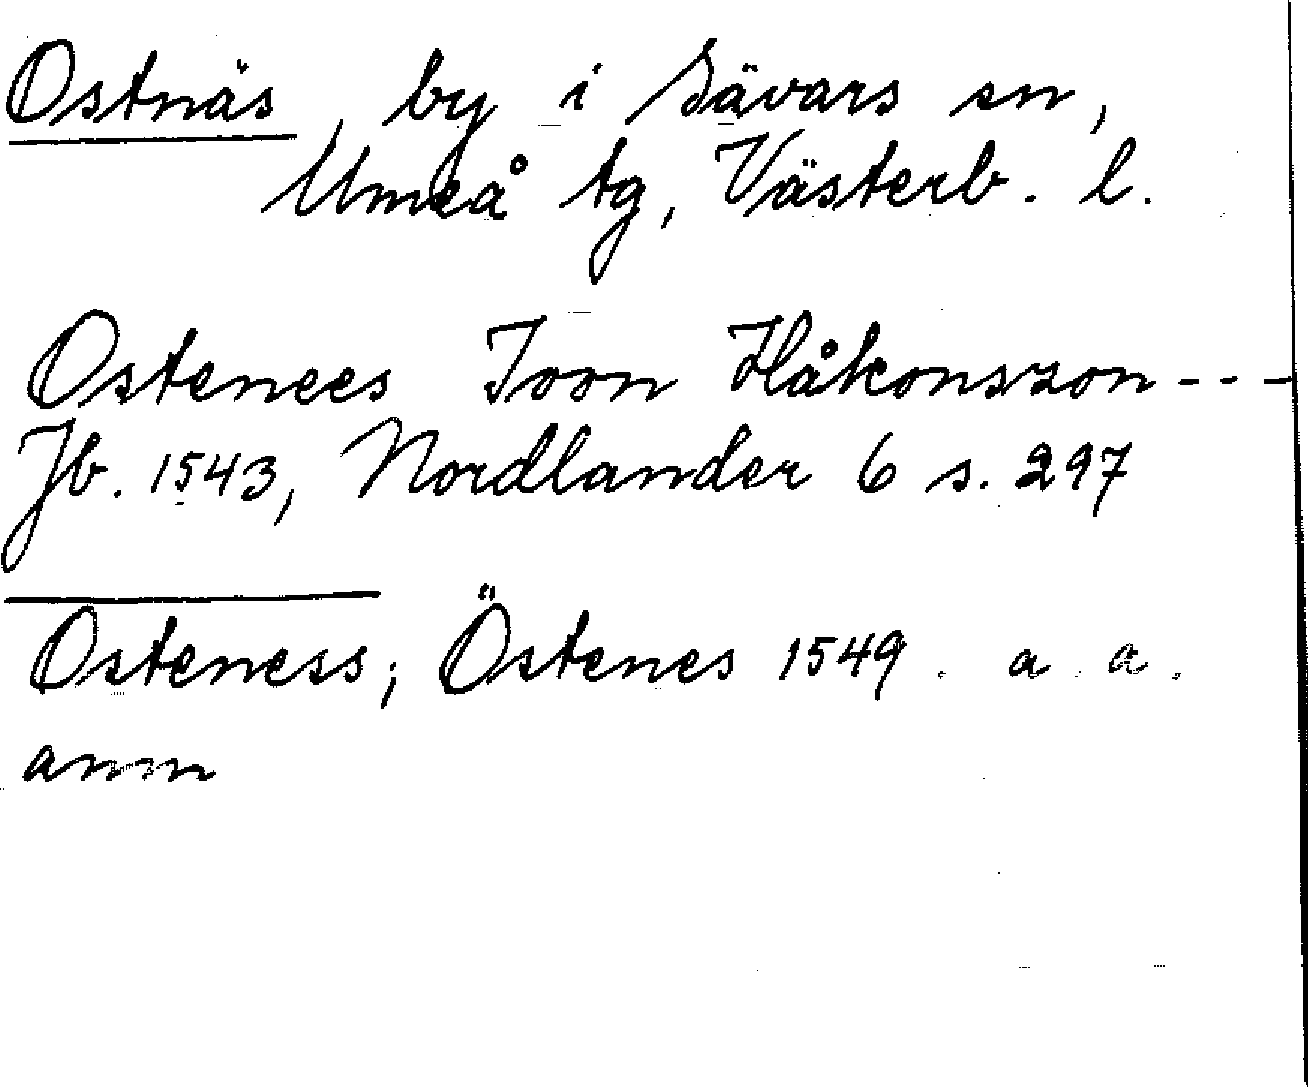 Ostnäs, by i Sävars sn,
Umeå tg, Västerb. l.
Ostenees Joon Håkonszon ---
Jb. 1543, Nordlander 6 s. 297
Osteness; Östenes 1549. a. a.
anm